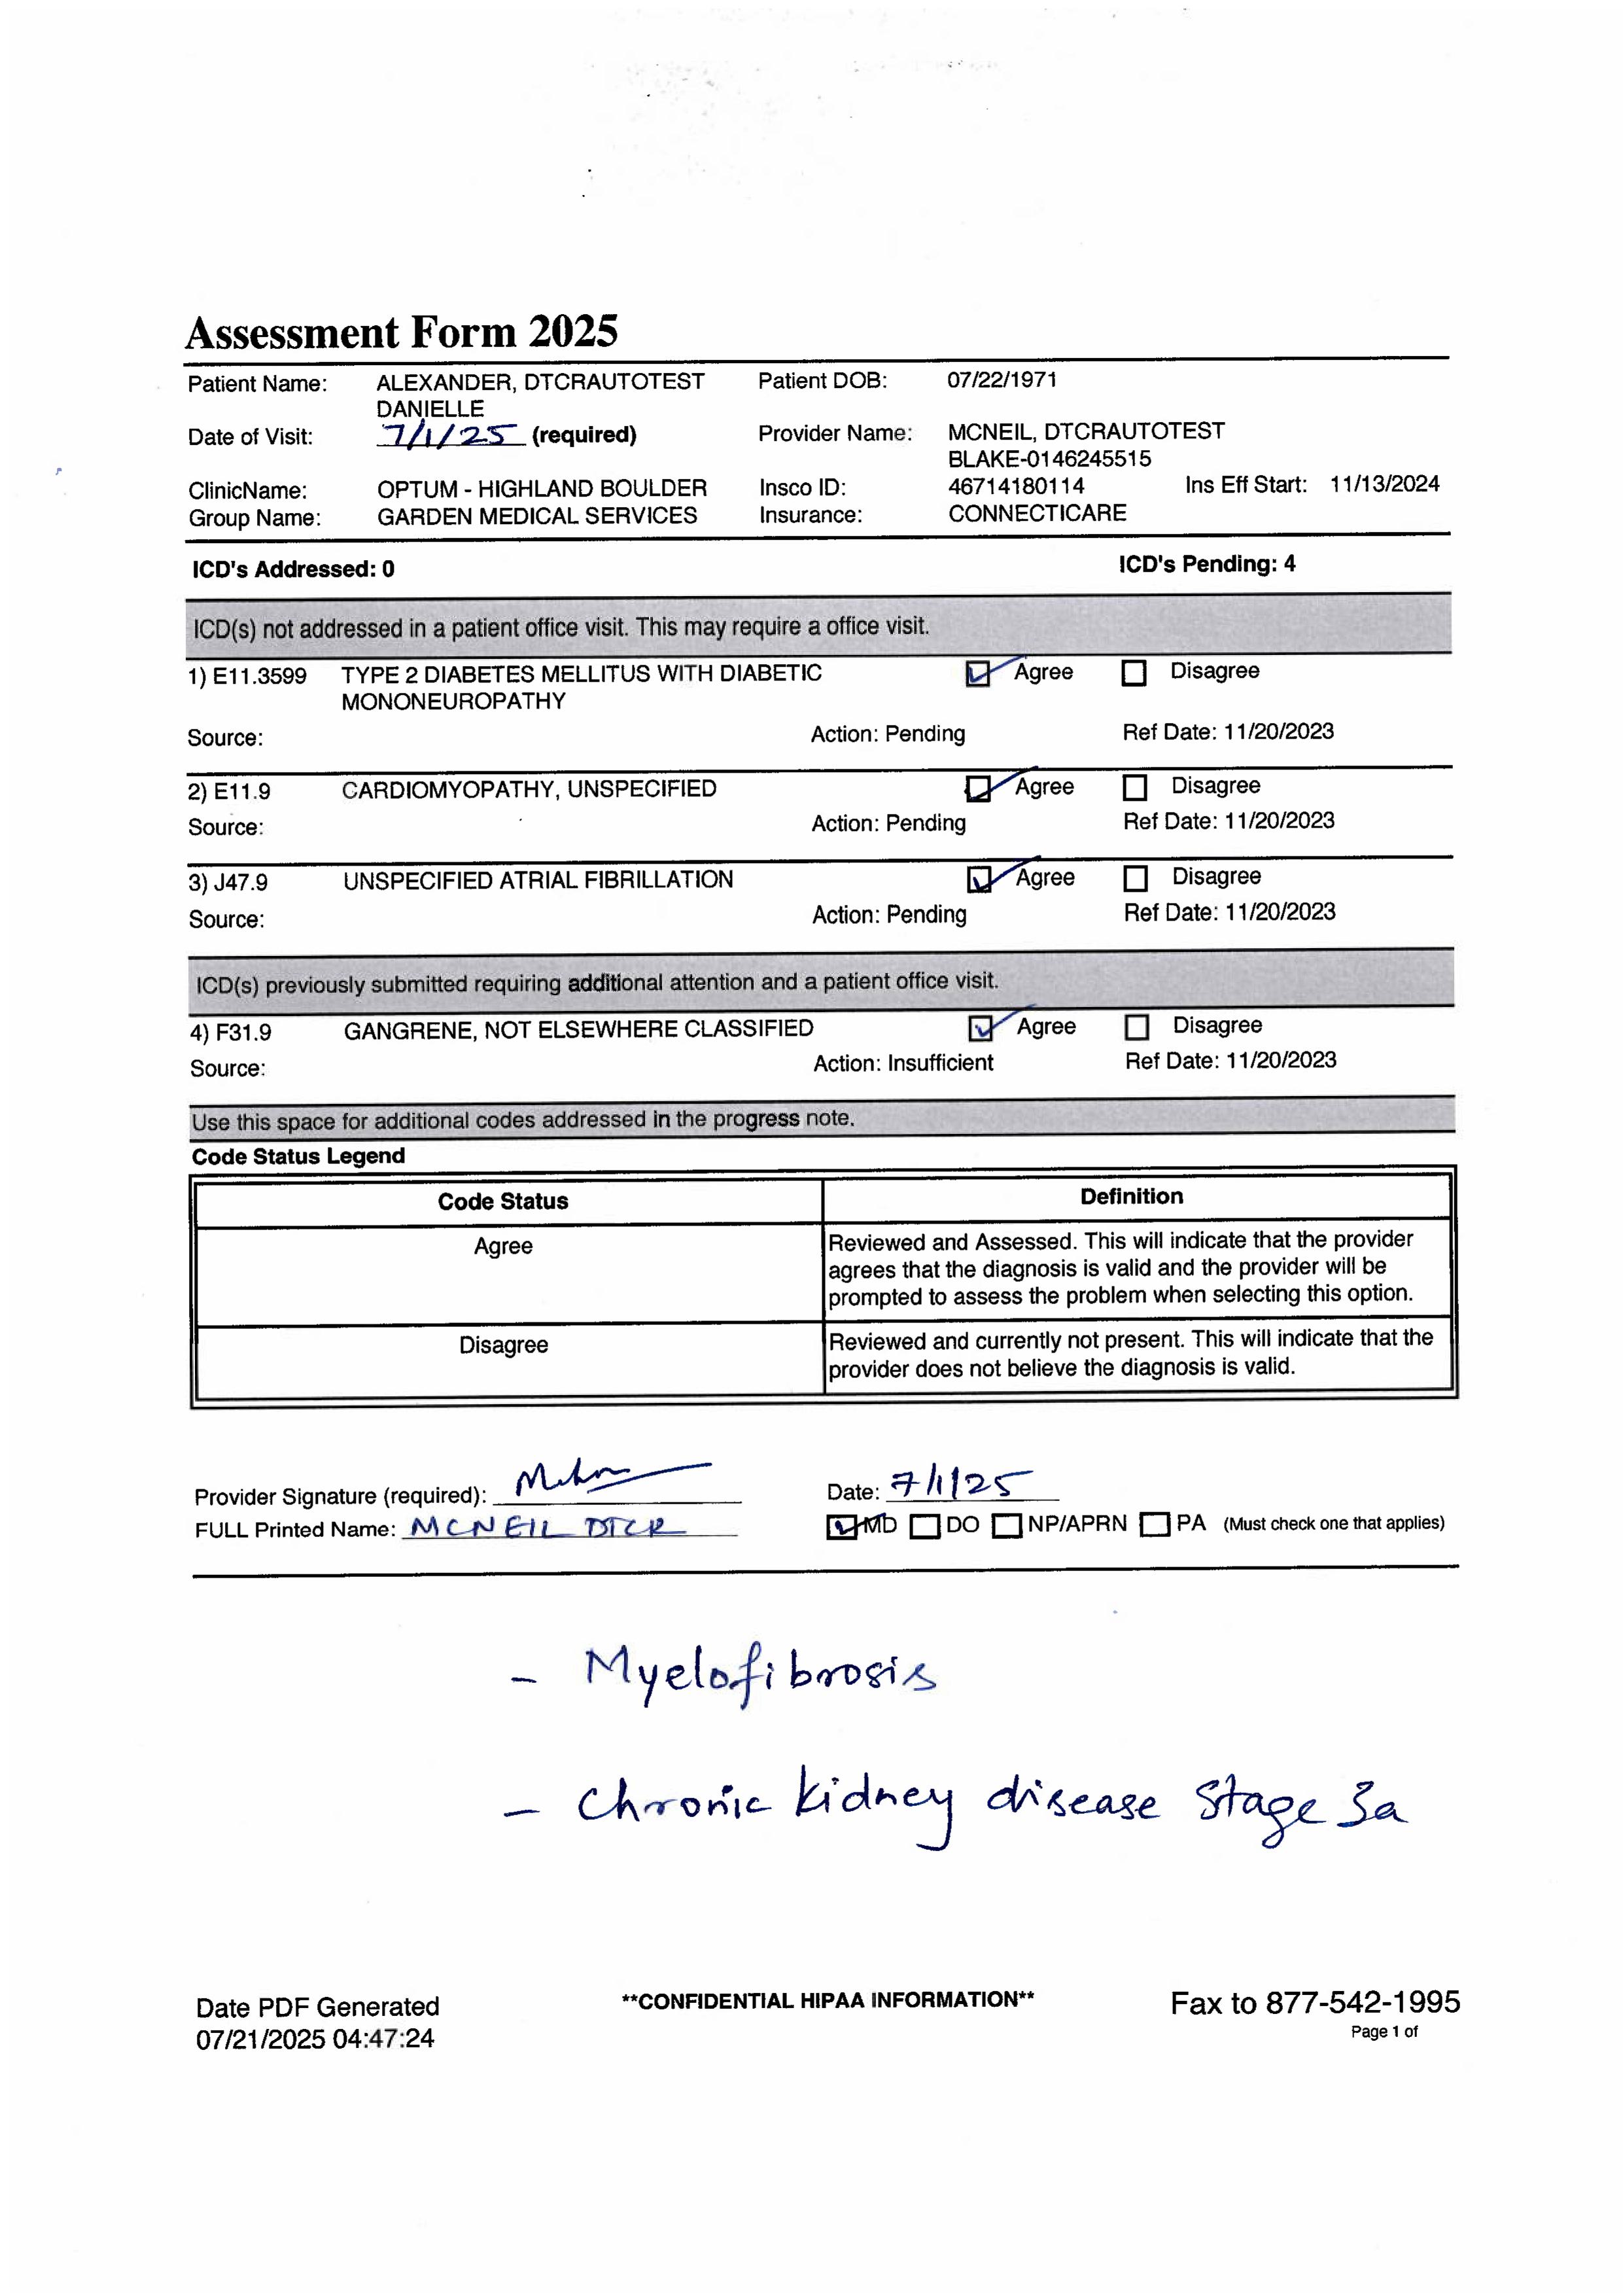 Assessment Form 2025
Patient Name: ALEXANDER, DTCRAUTOTEST DANIELLE Patient DOB: 07/22/1971
Date of Visit: 7/1/25 (required) Provider Name: MCNEIL, DTCRAUTOTEST BLAKE-0146245515
ClinicName: OPTUM - HIGHLAND BOULDER Insco ID: 46714180114 Ins Eff Start: 11/13/2024
Group Name: GARDEN MEDICAL SERVICES Insurance: CONNECTICARE
ICD's Addressed: 0 ICD's Pending: 4
ICD(s) not addressed in a patient office visit. This may require a office visit.
1) E11.3599 TYPE 2 DIABETES MELLITUS WITH DIABETIC MONONEUROPATHY Agree Disagree
Source: Action: Pending Ref Date: 11/20/2023
2) E11.9 CARDIOMYOPATHY, UNSPECIFIED Agree Disagree
Source: Action: Pending Ref Date: 11/20/2023
3) J47.9 UNSPECIFIED ATRIAL FIBRILLATION Agree Disagree
Source: Action: Pending Ref Date: 11/20/2023
ICD(s) previously submitted requiring additional attention and a patient office visit.
4) F31.9 GANGRENE, NOT ELSEWHERE CLASSIFIED Agree Disagree
Source: Action: Insufficient Ref Date: 11/20/2023
Use this space for additional codes addressed in the progress note.
Code Status Legend
Code Status Definition
Agree Reviewed and Assessed. This will indicate that the provider
agrees that the diagnosis is valid and the provider will be
prompted to assess the problem when selecting this option.
Disagree Reviewed and currently not present. This will indicate that the
provider does not believe the diagnosis is valid.
Provider Signature (required): Date: 7/1/25
FULL Printed Name: MCNEIL DTCR MD DO NP/APRN PA (Must check one that applies)
- Myelofibrosis
- Chronic kidney disease Stage 3a
Date PDF Generated **CONFIDENTIAL HIPAA INFORMATION** Fax to 877-542-1995
07/21/2025 04:47:24 Page 1 of